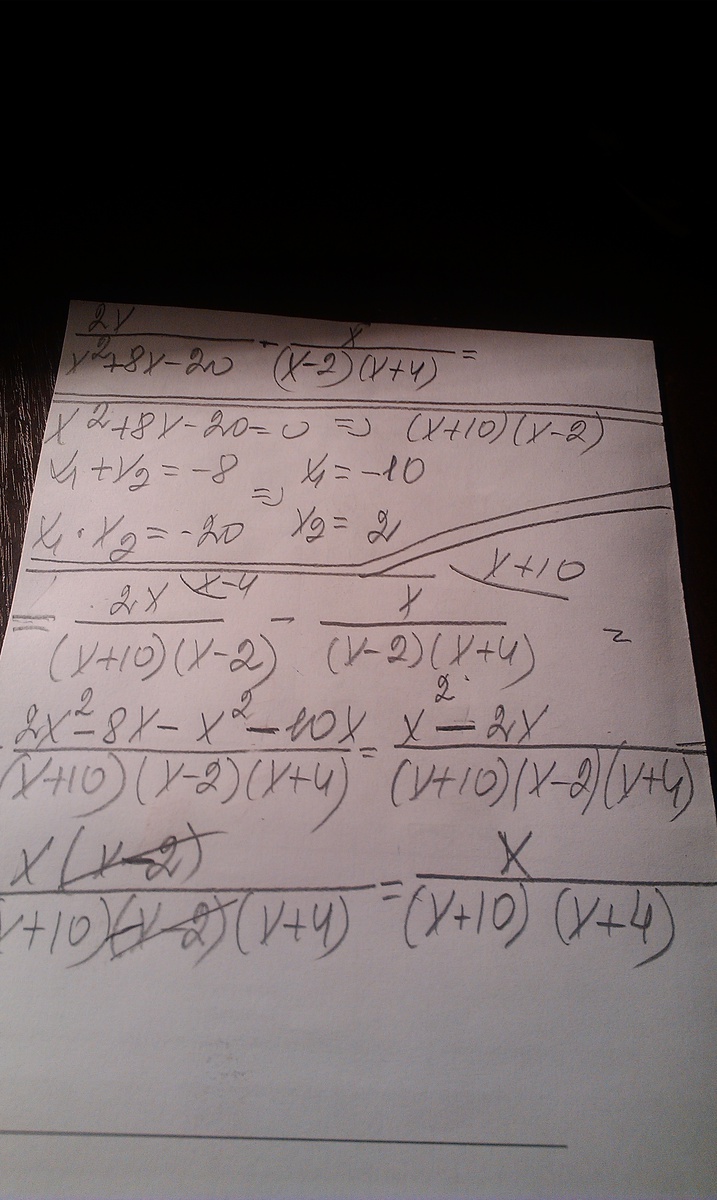 2x/(x²+8x-20) - x/((x-2)(x+4)) =
x²+8x-20=0 => (x+10)(x-2)
x₁+x₂=-8 x₁=-10
=>
x₁·x₂=-20 x₂=2
x-4 x+10
= 2x/((x+10)(x-2)) - x/((x-2)(x+4)) =
(2x²-8x-x²-10x)/((x+10)(x-2)(x+4)) = (x²-2x)/((x+10)(x-2)(x+4))
x(x-2)/((x+10)(x-2)(x+4)) = x/((x+10)(x+4))